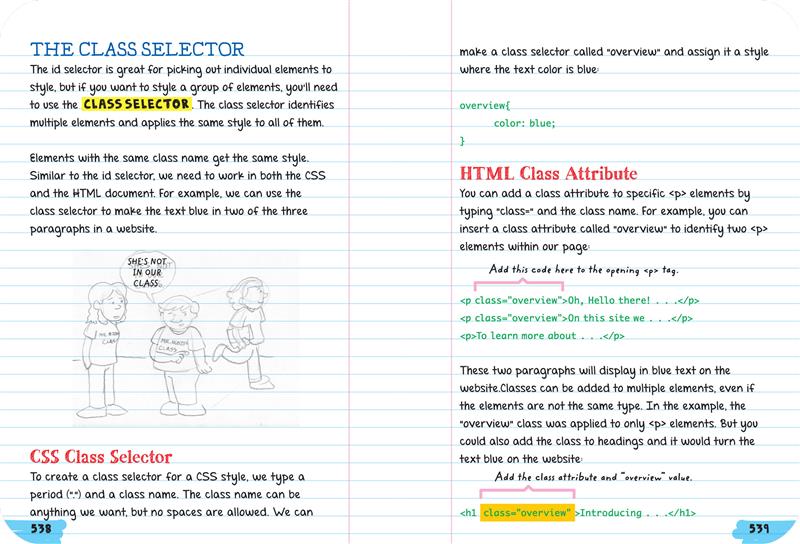 THE CLASS SELECTOR
The id selector is great for picking out individual elements to
style, but if you want to style a group of elements, you'll need
to use the CLASS SELECTOR. The class selector identifies
multiple elements and applies the same style to all of them.
Elements with the same class name get the same style.
Similar to the id selector, we need to work in both the CSS
and the HTML document. For example, we can use the
class selector to make the text blue in two of the three
paragraphs in a website.
SHE'S NOT
IN OUR
CLASS.
CSS Class Selector
To create a class selector for a CSS style, we type a
period (".") and a class name. The class name can be
anything we want, but no spaces are allowed. We can
538
make a class selector called "overview" and assign it a style
where the text color is blue:
overview{
color: blue;
}
HTML Class Attribute
You can add a class attribute to specific <p> elements by
typing "class=" and the class name. For example, you can
insert a class attribute called "overview" to identify two <p>
elements within our page:
Add this code here to the opening <p> tag.
<p class="overview">Oh, Hello there! . . .</p>
<p class="overview">On this site we . . .</p>
<p>To learn more about . . .</p>
These two paragraphs will display in blue text on the
website.Classes can be added to multiple elements, even if
the elements are not the same type. In the example, the
"overview" class was applied to only <p> elements. But you
could also add the class to headings and it would turn the
text blue on the website:
Add the class attribute and "overview" value.
<h1 class="overview" >Introducing . . .</h1>
539